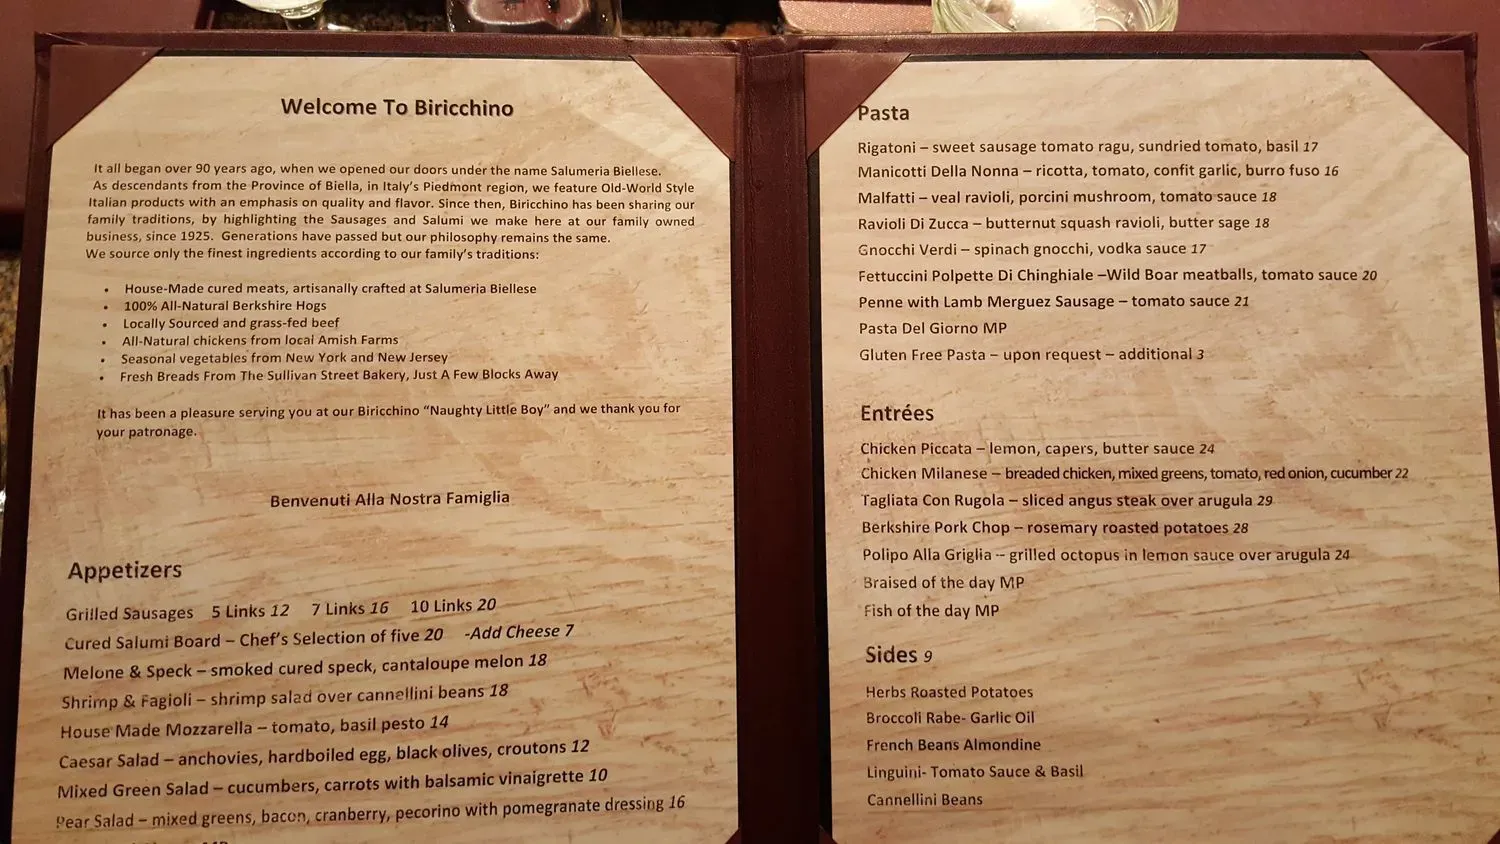 Welcome To Biricchino
It all began over 90 years ago, when we opened our doors under the name Salumeria Biellese.
As descendants from the Province of Biella, in Italy's Piedmont region, we feature Old-World Style
Italian products with an emphasis on quality and flavor. Since then, Biricchino has been sharing our
family traditions, by highlighting the Sausages and Salumi we make here at our family owned
business, since 1925. Generations have passed but our philosophy remains the same.
We source only the finest ingredients according to our family's traditions:
• House-Made cured meats, artisanally crafted at Salumeria Biellese
• 100% All-Natural Berkshire Hogs
• Locally Sourced and grass-fed beef
• All-Natural chickens from local Amish Farms
• Seasonal vegetables from New York and New Jersey
• Fresh Breads From The Sullivan Street Bakery, Just A Few Blocks Away
It has been a pleasure serving you at our Biricchino “Naughty Little Boy” and we thank you for
your patronage.
Benvenuti Alla Nostra Famiglia
Appetizers
Grilled Sausages 5 Links 12 7 Links 16 10 Links 20
Cured Salumi Board – Chef's Selection of five 20 -Add Cheese 7
Melone & Speck – smoked cured speck, cantaloupe melon 18
Shrimp & Fagioli – shrimp salad over cannellini beans 18
House Made Mozzarella – tomato, basil pesto 14
Caesar Salad – anchovies, hardboiled egg, black olives, croutons 12
Mixed Green Salad – cucumbers, carrots with balsamic vinaigrette 10
Pear Salad – mixed greens, bacon, cranberry, pecorino with pomegranate dressing 16
Pasta
Rigatoni – sweet sausage tomato ragu, sundried tomato, basil 17
Manicotti Della Nonna – ricotta, tomato, confit garlic, burro fuso 16
Malfatti – veal ravioli, porcini mushroom, tomato sauce 18
Ravioli Di Zucca – butternut squash ravioli, butter sage 18
Gnocchi Verdi – spinach gnocchi, vodka sauce 17
Fettuccini Polpette Di Chinghiale –Wild Boar meatballs, tomato sauce 20
Penne with Lamb Merguez Sausage – tomato sauce 21
Pasta Del Giorno MP
Gluten Free Pasta – upon request – additional 3
Entrées
Chicken Piccata – lemon, capers, butter sauce 24
Chicken Milanese – breaded chicken, mixed greens, tomato, red onion, cucumber 22
Tagliata Con Rugola – sliced angus steak over arugula 29
Berkshire Pork Chop – rosemary roasted potatoes 28
Polipo Alla Griglia -- grilled octopus in lemon sauce over arugula 24
Braised of the day MP
Fish of the day MP
Sides 9
Herbs Roasted Potatoes
Broccoli Rabe- Garlic Oil
French Beans Almondine
Linguini- Tomato Sauce & Basil
Cannellini Beans